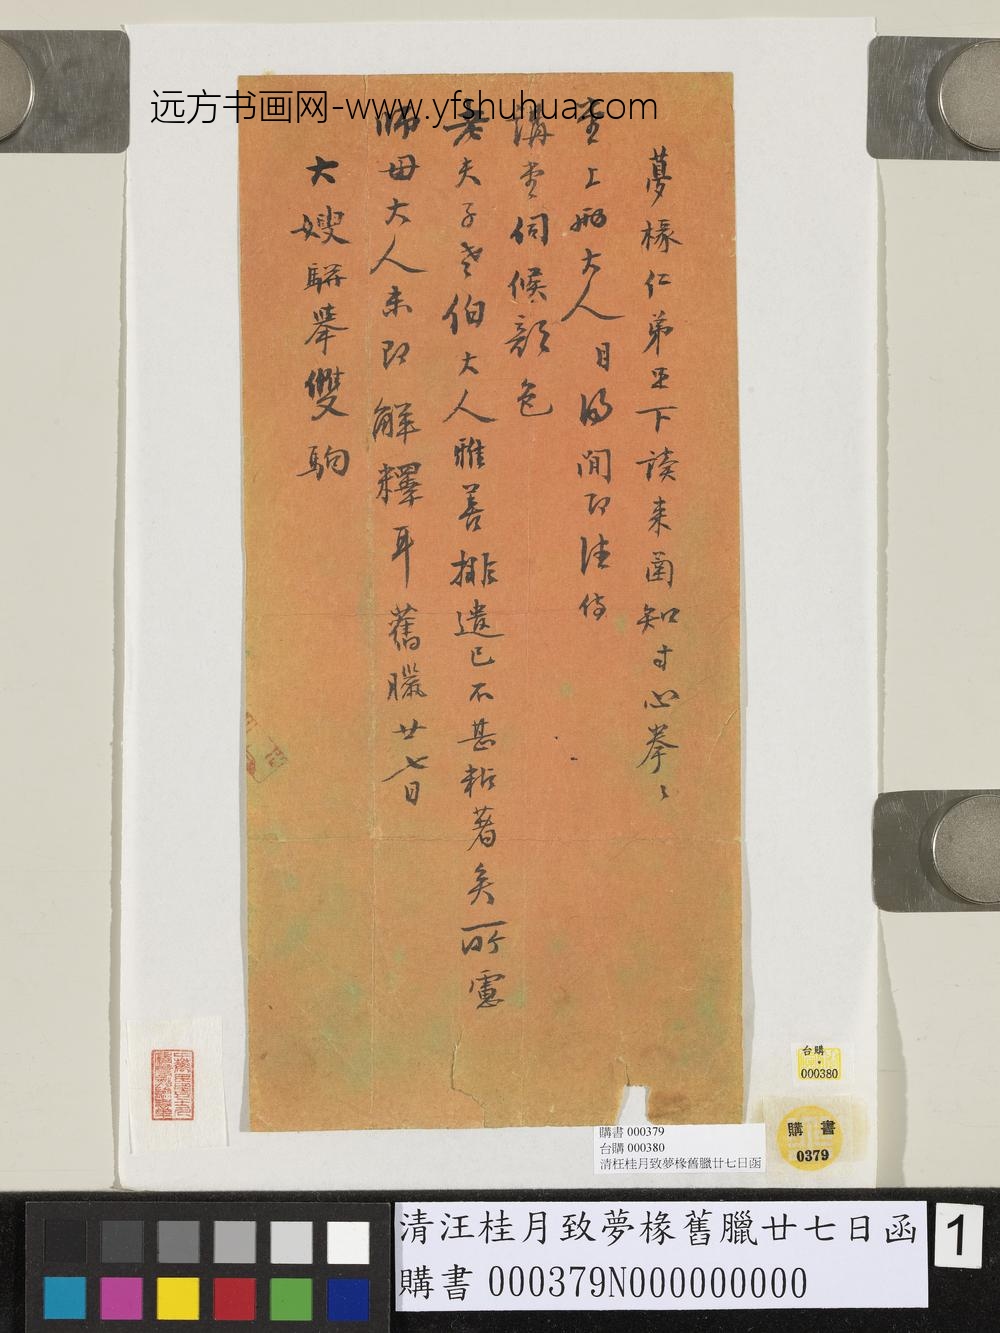 远方书画网-www.yfshuhua.com
夢椽仁弟足下讀來函知寸心拳〻
堂上兩大人日得間即往侍
講堂伺候顏色
老夫子老伯大人雅善排遣已不甚粘著矣所慮
師母大人未即解釋耳舊臘廿七日
大嫂駢舉雙駒
台購
000380
購書
0379
購書 000379
台購 000380
清汪桂月致夢椽舊臘廿七日函
清汪桂月致夢椽舊臘廿七日函
購書 000379N000000000
1